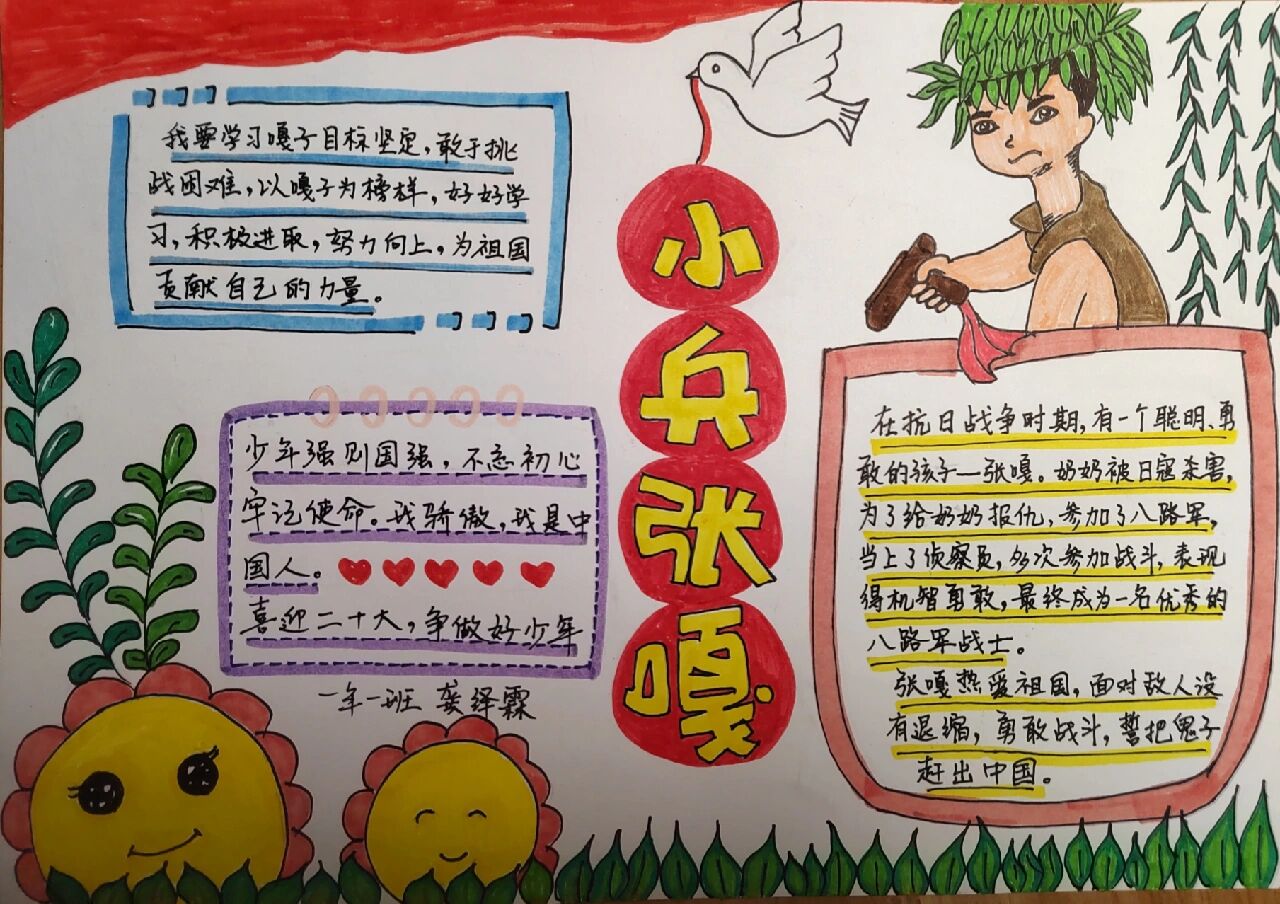 我要学习嘎子目标坚定，敢于挑
战困难，以嘎子为榜样，好好学
习，积极进取，努力向上，为祖国
贡献自己的力量。
少年强则国强，不忘初心
牢记使命。我骄傲，我是中
国人。
喜迎二十大，争做好少年
一年一班 龚绎霖
小兵张嘎
在抗日战争时期，有一个聪明、勇
敢的孩子——张嘎。奶奶被日寇杀害，
为了给奶奶报仇，参加了八路军，
当上了侦察员，多次参加战斗，表现
得机智勇敢，最终成为一名优秀的
八路军战士。
张嘎热爱祖国，面对敌人没
有退缩，勇敢战斗，誓把鬼子
赶出中国。